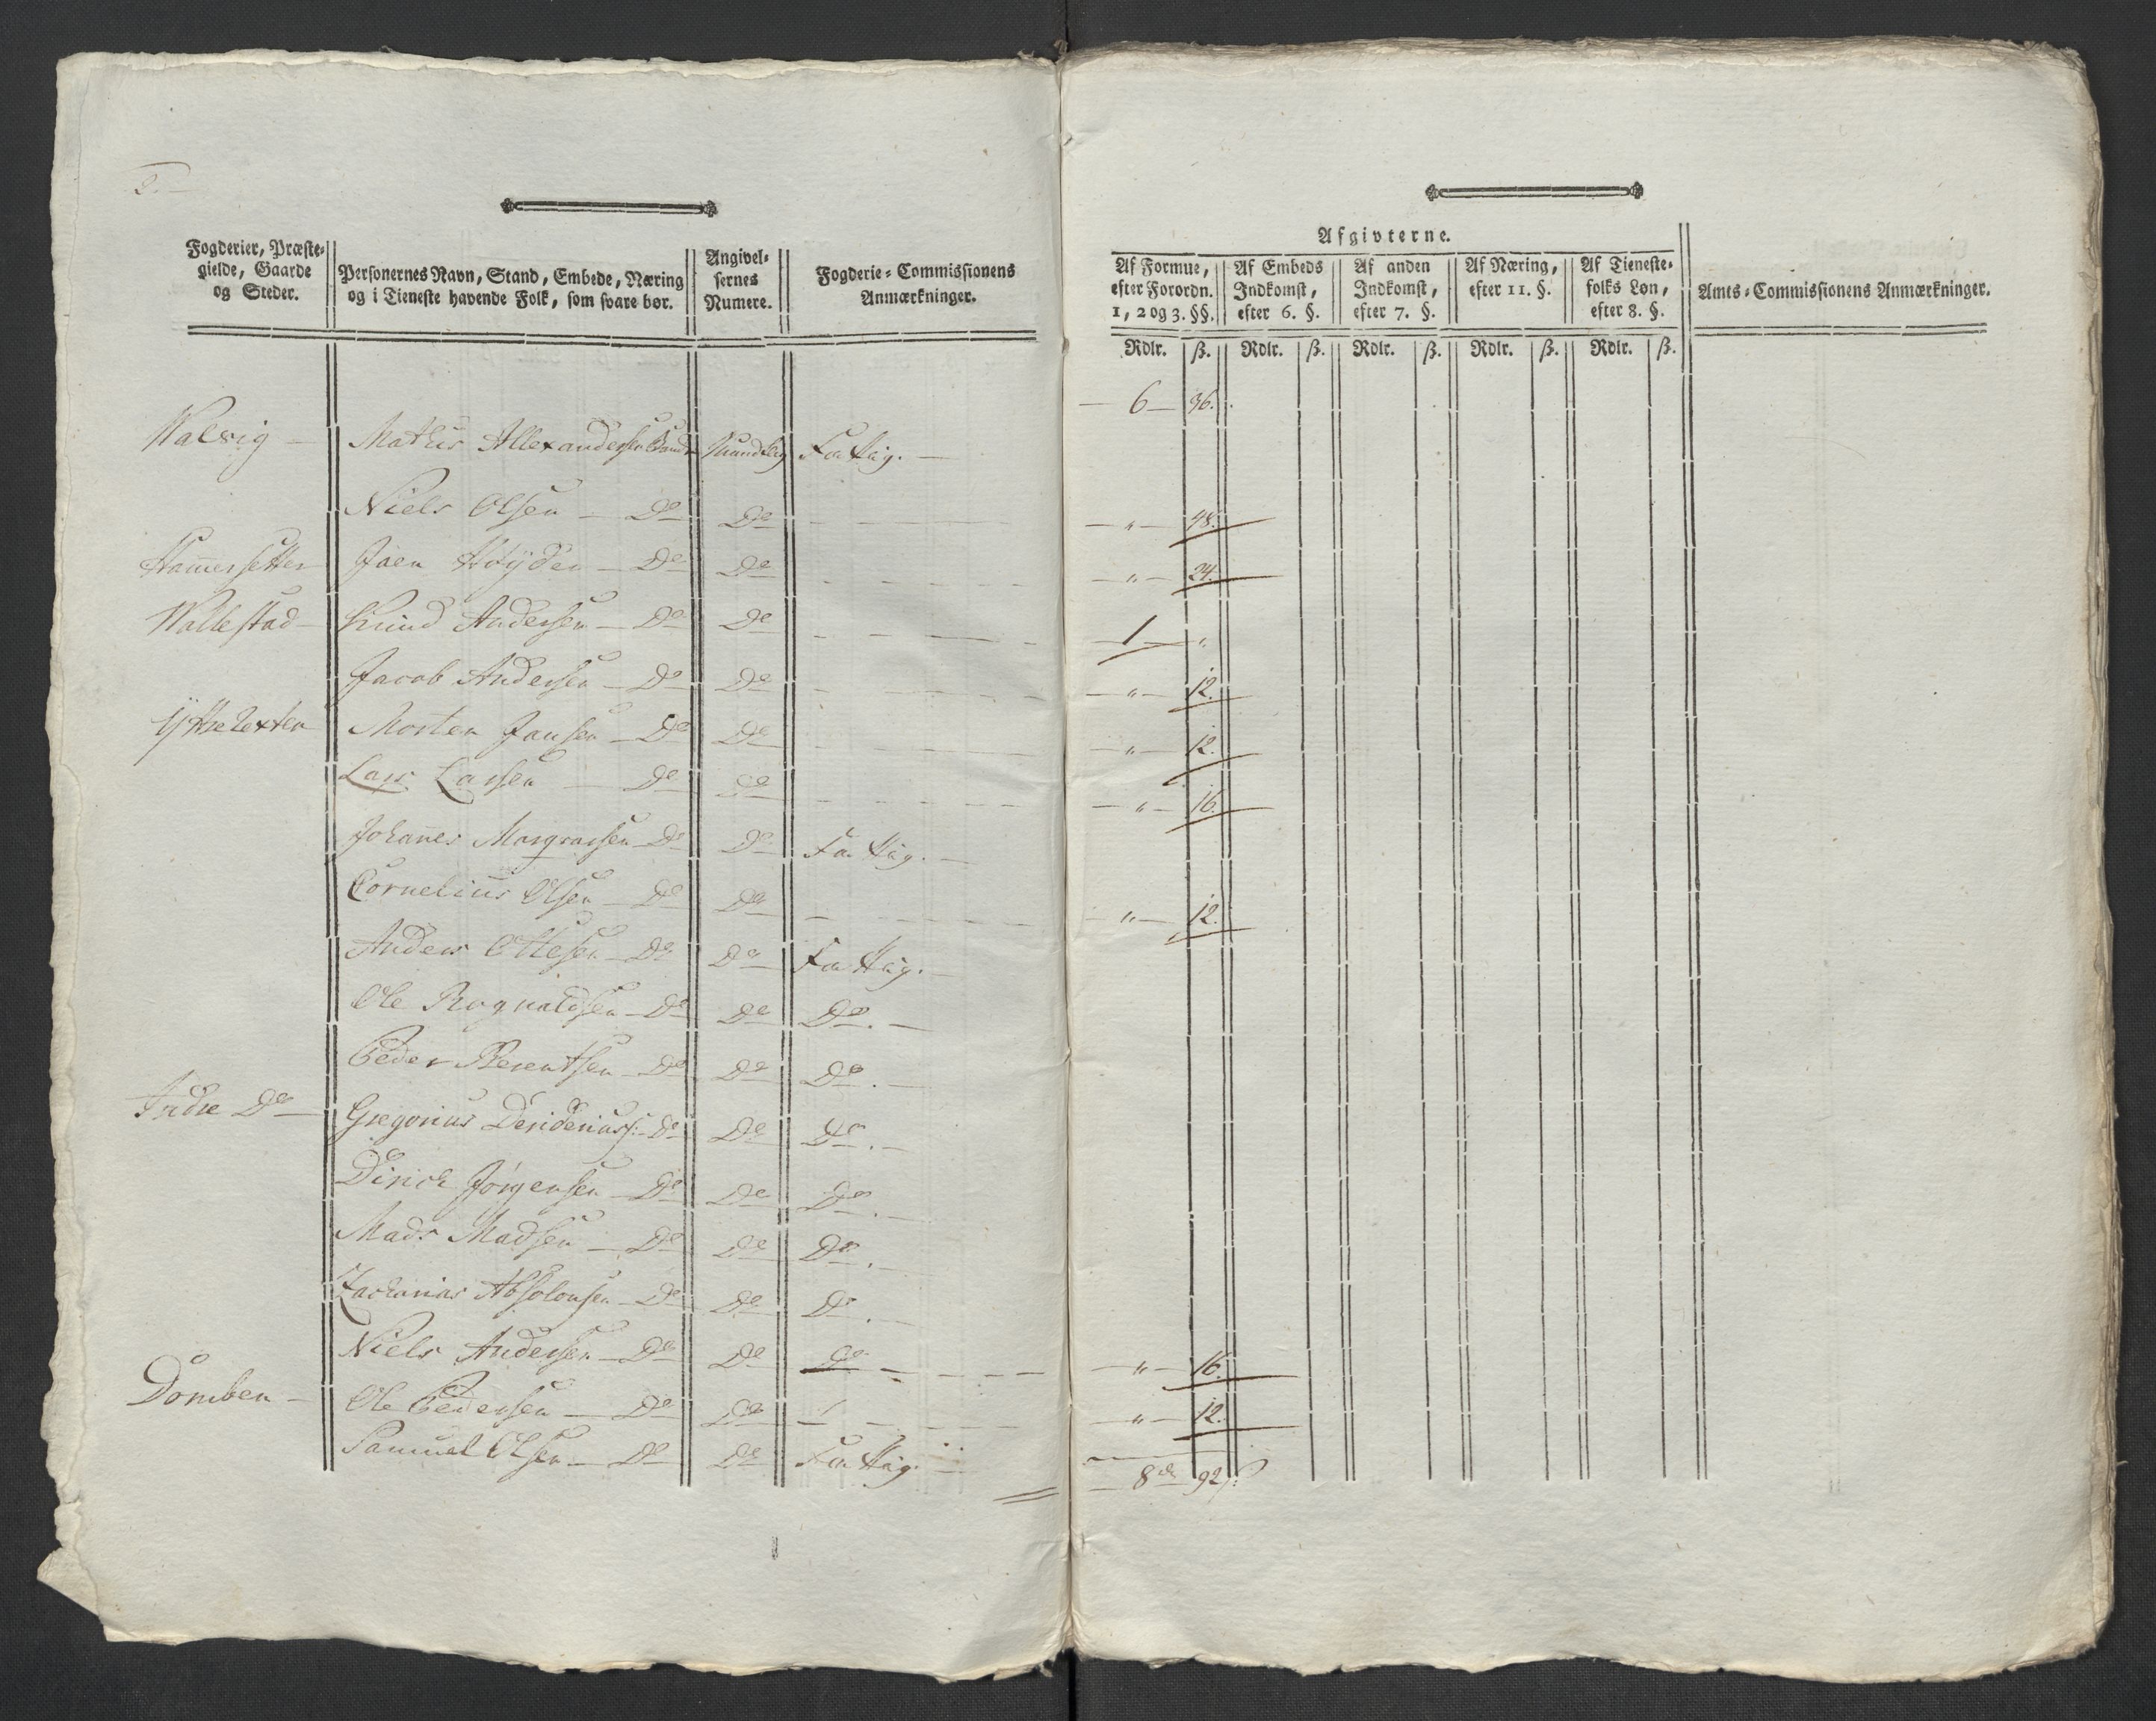 2.
Fogderier, Præste-
gielde, Gaarde
og Steder.
Personernes Navn, Stand, Embede, Næring
og i Tieneste havende Folk, som svare bør.
Angivel-
sernes
Numere.
Fogderie-Commissionens
Anmærkninger.
Afgivterne.
Af Formue,
efter Forordn.
1, 2 og 3. §§.
Af Embeds
Indkomst,
efter 6. §.
Af anden
Indkomst,
efter 7. §.
Af Næring,
efter 11. §.
Af Tieneste-
folks Løn,
efter 8. §.
Amts-Commissionens Anmærkninger.
Rdlr. ß. Rdlr. ß. Rdlr. ß. Rdlr. ß. Rdlr. ß.
6 36.
Walvig Mathis Allexandersen Bonde Mundtlig Fattig.
Niels Olsen Do Do „ 48.
Hamersetter Joen Do Do „ 24.
Wallestad Knud Andersen Do Do 1 „
Jacob Andersen Do Do „ 12.
Morten Jansen Do Do „ 12.
Lars Larsen Do Do „ 16.
Johanes Do Do Fattig.
Cornelius Olsen Do Do „ 12.
Anders Ottesen Do Do Fattig.
Ole Rognaldsen Do Do Do.
Peder Berentsen Do Do Do.
Indre Do Gregorius Do Do Do.
Dirich Jørgensen Do Do Do.
Mads Madsen Do Do Do.
Zacharias Absolonsen Do Do Do.
Niels Andersen Do Do Do „ 16.
Domben Ole Pedersen Do Do „ 12.
Samuel Olsen Do Do Fattig.
8 92